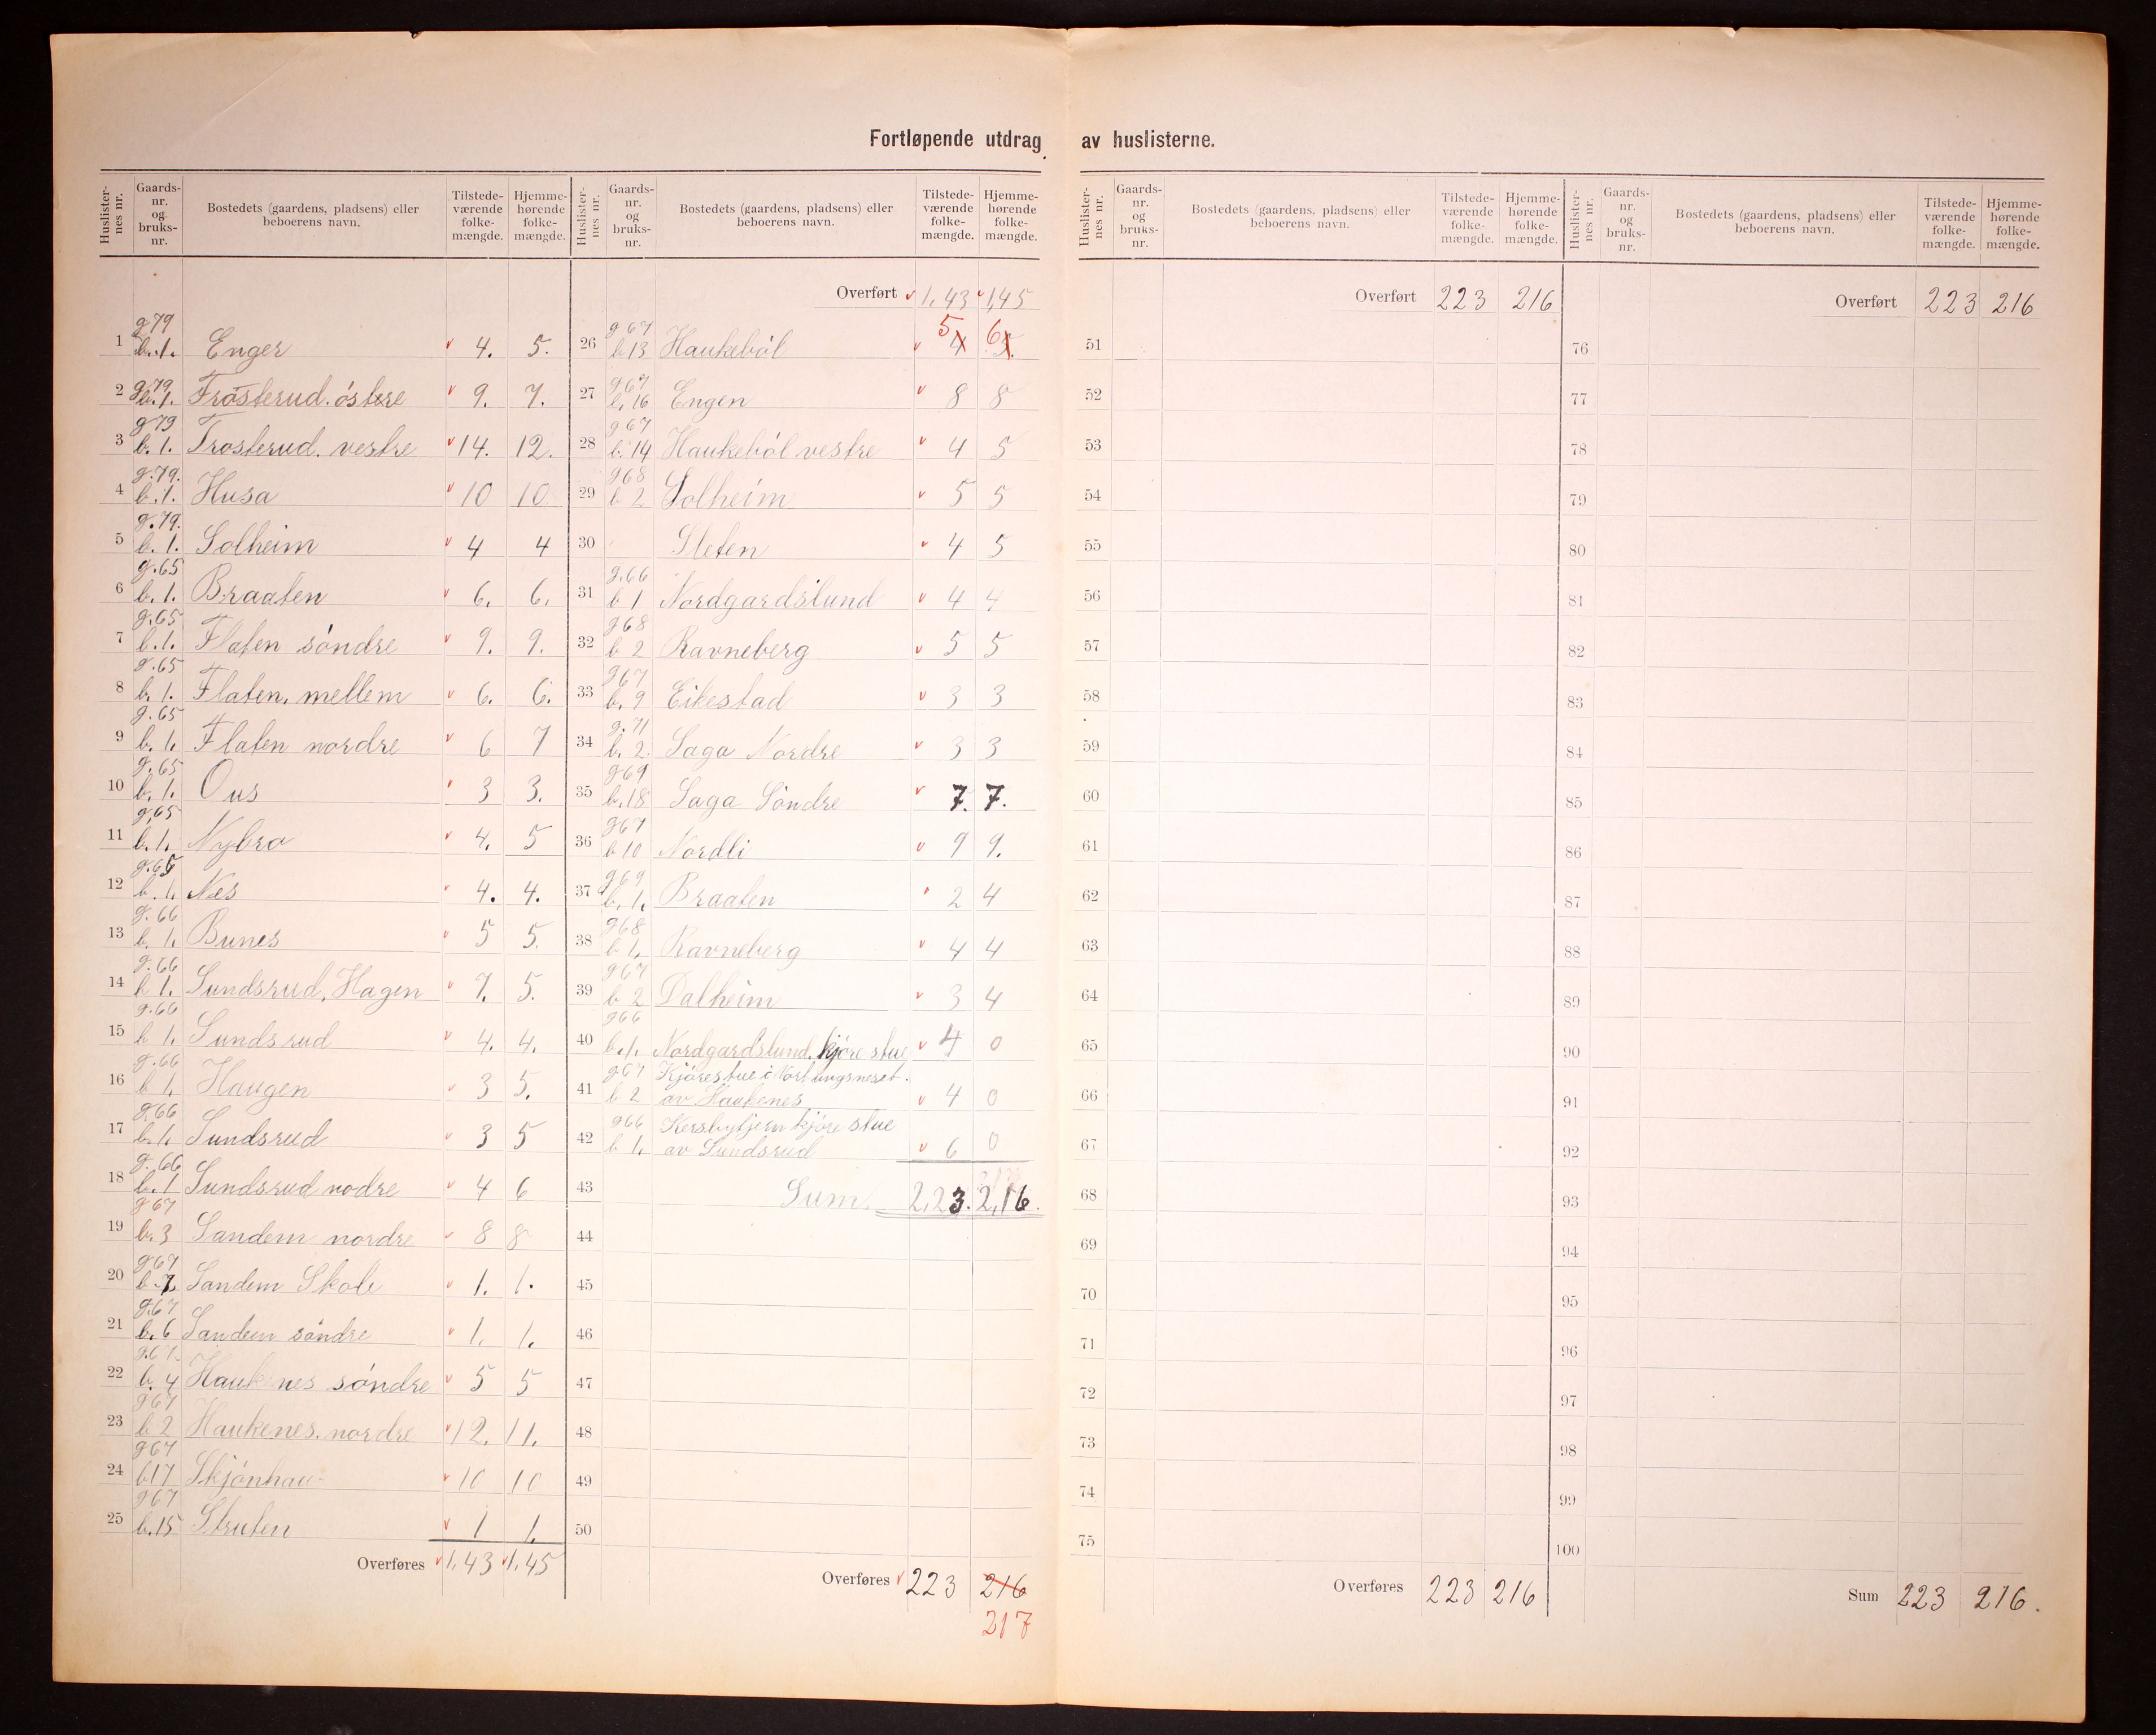 Fortløpende utdrag av huslisterne.
Huslisternes nr. Gaards-nr. og bruks-nr. Bostedets (gaardens, pladsens) eller beboerens navn. Tilstedeværende folkemængde. Hjemmehørende folkemængde.
1 g 79 b. 1. Enger v 4. 5.
2 g. 79 b. 1. Trosterud. östre v 9. 7.
3 g 79 b. 1. Trosterud. vestre v 14. 12.
4 g. 79. b. 1. Husa v 10 10
5 g. 79. b. 1. Solheim v 4 4
6 g. 65 b. 1. Braaten v 6. 6.
7 g. 65 b. 1. Flaten söndre v 9. 9.
8 g. 65 b. 1. Flaten. mellem v 6. 6.
9 g. 65 b. 1. Flaten nordre v 6 7
10 g. 65 b. 1. Ous v 3 3.
11 g. 65 b. 1. Nybro v 4. 5
12 g. 65 b. 1. Nes v 4. 4.
13 g. 66 b. 1. Bunes v 5 5.
14 g. 66 b 1. Sundsrud, Hagen v 7. 5.
15 g. 66 b 1. Sundsrud v 4. 4.
16 g. 66 b 1. Haugen v 3 5.
17 g. 66 b. 1. Sundsrud v 3 5
18 g. 66 b. 1 Sundsrud nodre v 4 6
19 g 67 b. 3 Sandem nordre v 8 8
20 g 67 b. 7. Sandem Skole v 1. 1.
21 g. 67 b. 6 Sandem söndre v 1. 1.
22 g. 67 b. 4 Haukenes söndre v 5 5
23 g 67 b 2 Haukenes. nordre v 12. 11.
24 g 67 b 17 Skjönhau- v 10 10
25 g 67 b. 15 Struten v 1 1.
Overføres v 1,43 v 1,45
Huslisternes nr. Gaards-nr. og bruks-nr. Bostedets (gaardens, pladsens) eller beboerens navn. Tilstedeværende folkemængde. Hjemmehørende folkemængde.
Overført v 1,43 v 1,45
5 6
26 g 67 b 13 Hauketböl v 4 5.
27 g 67 b. 16 Engen v 8 8
28 g 67 b. 14 Hauketböl vestre v 4 5
29 g 68 b 2 Solheim v 5 5
30 Sleten v 4 5
31 g. 66 b 1 Nordgardslund v 4 4
32 g 68 b 2 Ravneberg v 5 5
33 g 67 b. 9 Eikestad v 3 3
34 g. 71 b. 2. Saga Nordre v 3 3
35 g 69 b. 18 Saga Söndre v 7. 7.
36 g 67 b 10 Nordli v 9 9.
37 g 69 b. 1. Braaten v 2 4
38 g 68 b 1. Ravneberg v 4 4
39 g 67 b 2 Dalheim v 3 4
40 g 66 b. 1. Nordgardslund. kjöre stue v 4 0
41 g 67 b 2 Kjörestue i
av Haukenes v 4 0
42 g 66 b 1. kjöre stue
av Sundsrud v 6 0
43 Sum. 2,23. 2,16.
44
45
46
47
48
49
50
Overføres v 223 216
217
Huslisternes nr. Gaards-nr. og bruks-nr. Bostedets (gaardens, pladsens) eller beboerens navn. Tilstedeværende folkemængde. Hjemmehørende folkemængde.
Overført 223 216
51
52
53
54
55
56
57
58
59
60
61
62
63
64
65
66
67
68
69
70
71
72
73
74
75
Overføres 223 216
Huslisternes nr. Gaards-nr. og bruks-nr. Bostedets (gaardens, pladsens) eller beboerens navn. Tilstedeværende folkemængde. Hjemmehørende folkemængde.
Overført 223 216
76
77
78
79
80
81
82
83
84
85
86
87
88
89
90
91
92
93
94
95
96
97
98
99
100
Sum 223 216.